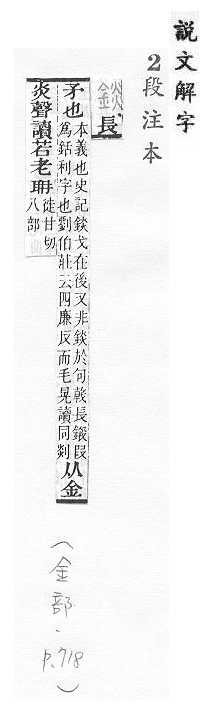 説文解字
2段注本
錟 長
矛也本義也史記錟戈在後又非錟於句戟長鎩叚
爲銛利字也劉伯莊云四廉反而毛晃讀同剡从金
炎聲讀若老聃徒甘切
八部
(金部.p.718)